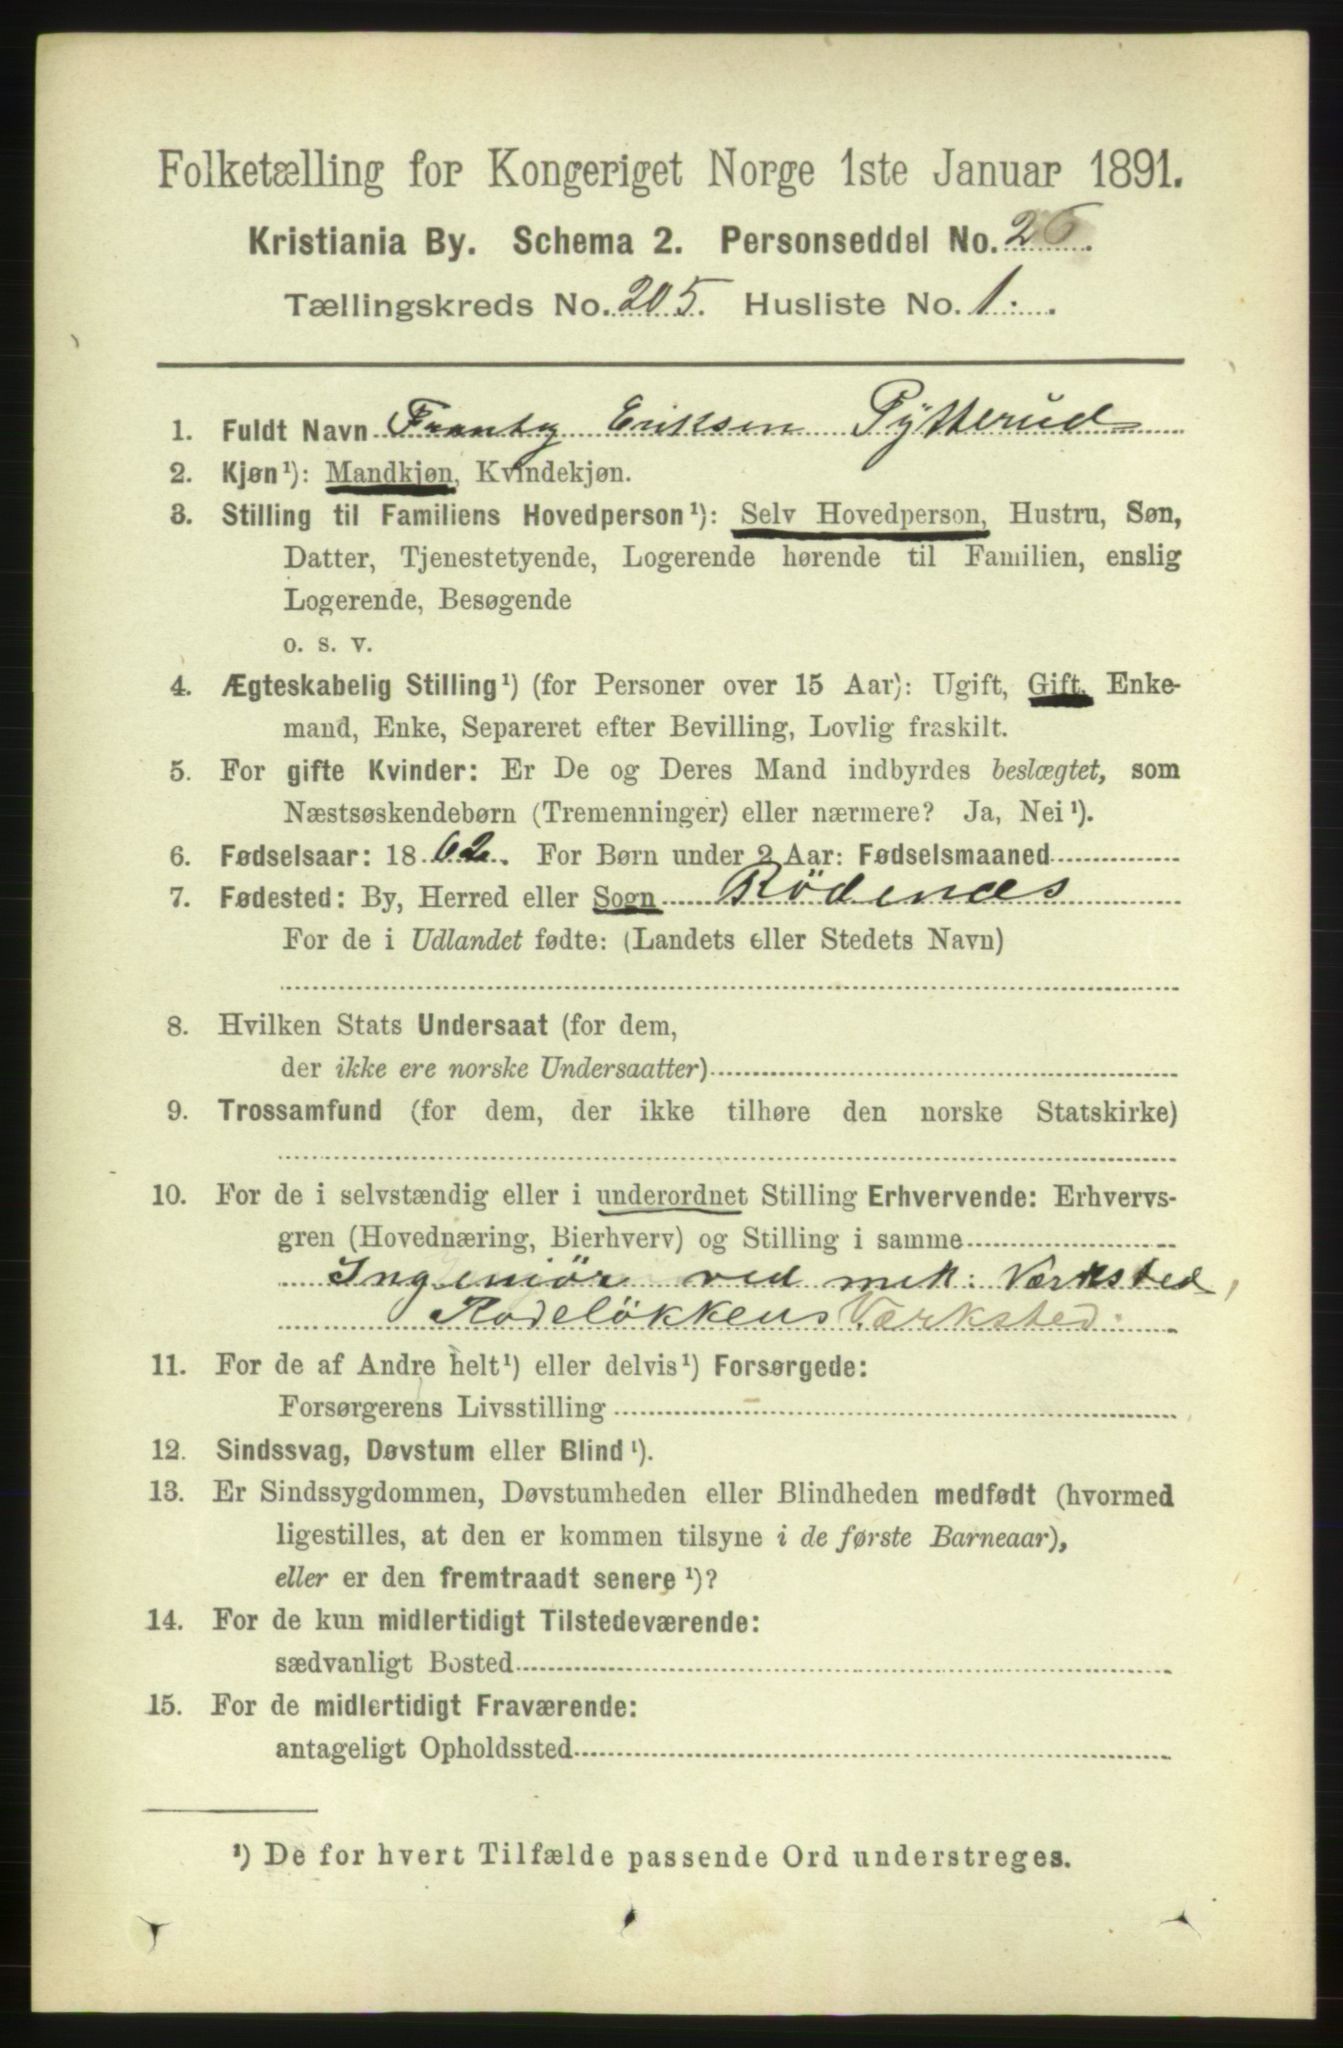 Folketælling for Kongeriget Norge 1ste Januar 1891.
Kristiania By. Schema 2. Personseddel No. 26.
Tællingskreds No. 205. Husliste No. 1.
1. Fuldt Navn Eriksen Pytterud
2. Kjøn¹): Mandkjøn, Kvindekjøn.
3. Stilling til Familiens Hovedperson¹): Selv Hovedperson, Hustru, Søn,
Datter, Tjenestetyende, Logerende hørende til Familien, enslig
Logerende, Besøgende
o. s. v.
4. Ægteskabelig Stilling¹) (for Personer over 15 Aar): Ugift, Gift, Enke-
mand, Enke, Separeret efter Bevilling, Lovlig fraskilt.
5. For gifte Kvinder: Er De og Deres Mand indbyrdes beslægtet, som
Næstsøskendebørn (Tremenninger) eller nærmere? Ja, Nei¹).
6. Fødselsaar: 1862. For Børn under 2 Aar: Fødselsmaaned
7. Fødested: By, Herred eller Sogn Rödenæs
For de i Udlandet fødte: (Landets eller Stedets Navn)
8. Hvilken Stats Undersaat (for dem,
der ikke ere norske Undersaatter)
9. Trossamfund (for dem, der ikke tilhøre den norske Statskirke)
10. For de i selvstændig eller i underordnet Stilling Erhvervende: Erhvervs-
gren (Hovednæring, Bierhverv) og Stilling i samme
Ingeniör ved mek. Værksted,
Rodelökkens Værksted.
11. For de af Andre helt¹) eller delvis¹) Forsørgede:
Forsørgerens Livsstilling
12. Sindssvag, Døvstum eller Blind¹).
13. Er Sindssygdommen, Døvstumheden eller Blindheden medfødt (hvormed
ligestilles, at den er kommen tilsyne i de første Barneaar),
eller er den fremtraadt senere¹)?
14. For de kun midlertidigt Tilstedeværende:
sædvanligt Bosted
15. For de midlertidigt Fraværende:
antageligt Opholdssted
¹) De for hvert Tilfælde passende Ord understreges.